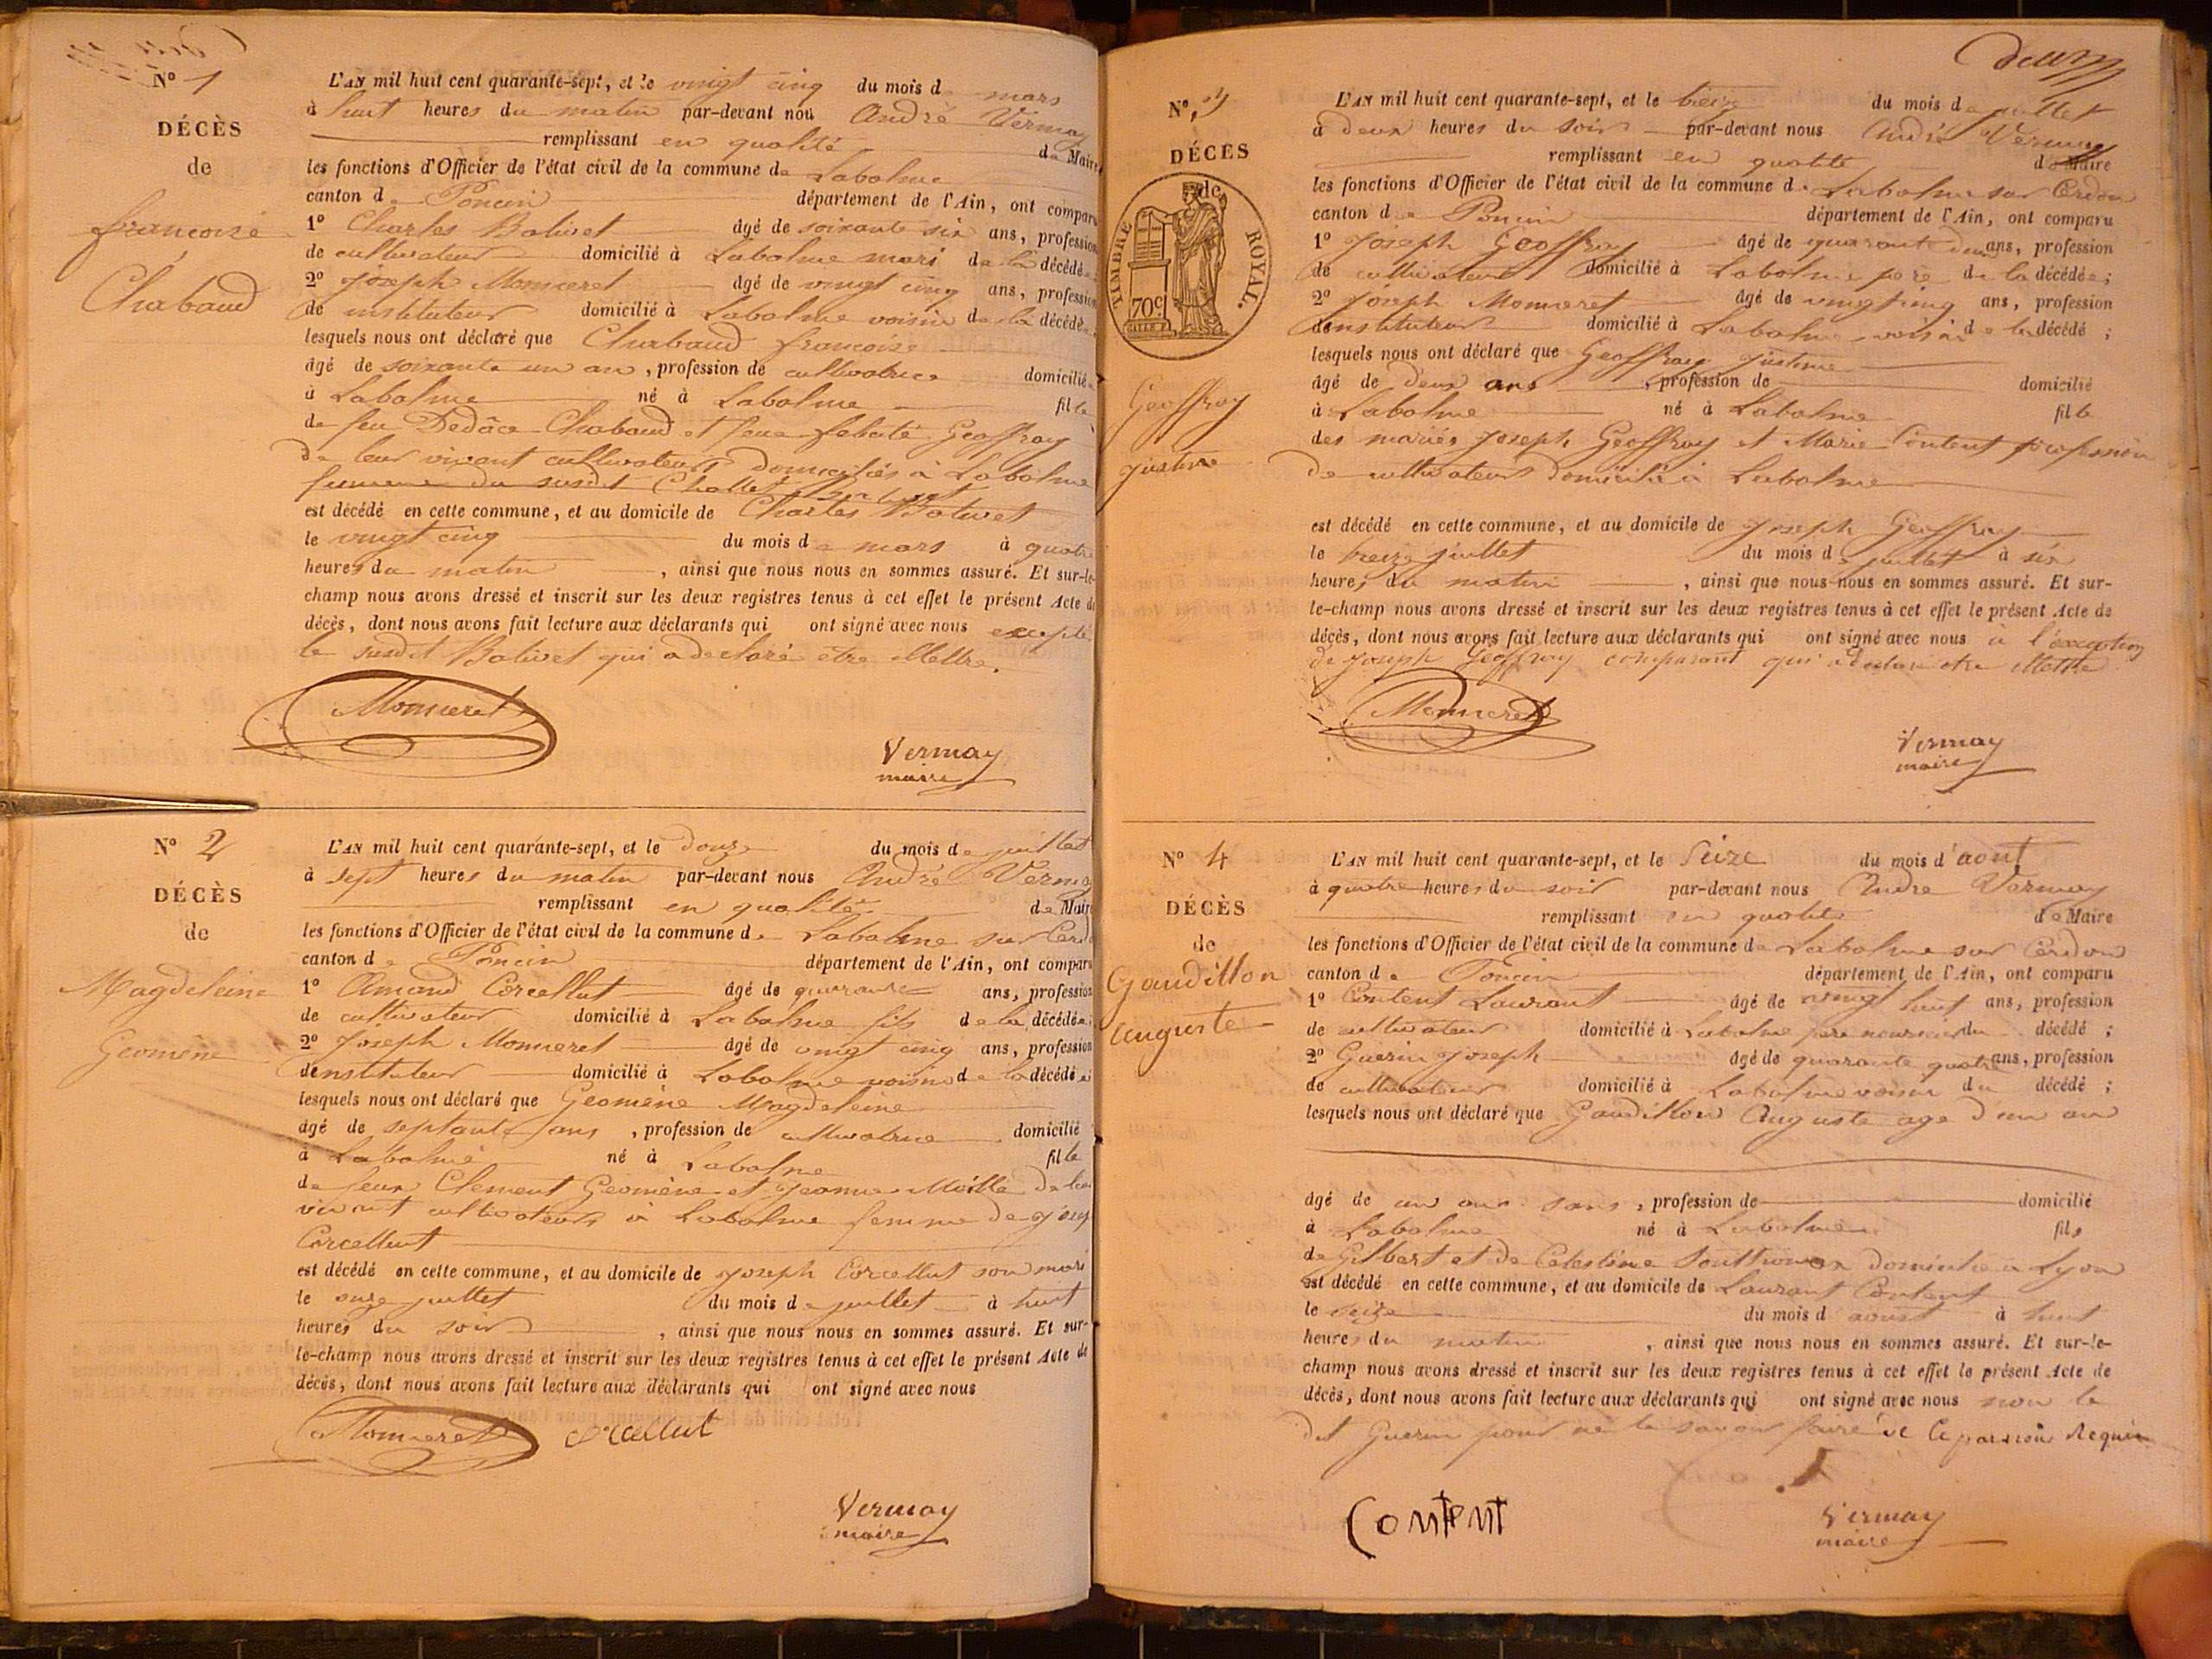 N° 1
DÉCÈS
de
françoise
Chabaud
L'AN mil huit cent quarante-sept, et le vingt cinq du mois d mars
à huit heures du matin par-devant nou André Vermay
remplissant en qualité de Maire
les fonctions d'Officier de l'état civil de la commune de Labalme
canton de Poncin département de l'Ain, ont compar
1° Charles Bolivet âgé de soixante six ans, profession
de cultivateur domicilié à Labalme mari de la décédée
2° Joseph Monneret âgé de vingt cinq ans, profession
de instituteur domicilié à Labalme voisin de la décédée
lesquels nous ont déclaré que Chabaud françoise
âgé de soixante un an, profession de cultivatrice domicilié
à Labalme né à Labalme fille
de feu Chabaud et feue Geoffray
de leur vivant cultivateurs domiciliés à Labalme
femme du susdit
est décédé en cette commune, et au domicile de Charles Bolivet
le vingt cinq du mois de mars à quatre
heures du matin, ainsi que nous nous en sommes assuré. Et sur-le-
champ nous avons dressé et inscrit sur les deux registres tenus à cet effet le présent Acte de
décès, dont nous avons fait lecture aux déclarants qui ont signé avec nous excepté
le susdit Bolivet qui a déclaré être illettré.
Monneret
Vermay
maire
N° 2
DÉCÈS
de
Magdeleine
Geomène
L'AN mil huit cent quarante-sept, et le douze du mois de juillet
à sept heures du matin par-devant nous André Vermay
remplissant en qualité de Maire
les fonctions d'Officier de l'état civil de la commune de Labalme sur Cerdo
canton de Poncin département de l'Ain, ont compar
1° Amand Corcellut âgé de quarante ans, profession
de cultivateur domicilié à Labalme fils de la décédée
2° Joseph Monneret âgé de vingt cinq ans, profession
d'enstituteur domicilié à Labalme voisin de la décédée
lesquels nous ont déclaré que Geomène Magdeleine
âgé de septante ans, profession de cultivatrice domicilié
à Labalme né à Labalme fille
de feux Clement Geomène et Jeanne de leur
vivant cultivateurs à Labalme femme de Josep
Corcellut
est décédé en cette commune, et au domicile de Joseph Corcellut son mari
le onze juillet du mois de juillet à huit
heures du soir, ainsi que nous nous en sommes assuré. Et sur-
le-champ nous avons dressé et inscrit sur les deux registres tenus à cet effet le présent Acte de
décès, dont nous avons fait lecture aux déclarants qui ont signé avec nous
Monneret corcellut
Vermay
maire
deux
N° 3
DÉCÈS
de
TIMBRE ROYAL.
70c
Geoffray
justine
L'AN mil huit cent quarante-sept, et le treize du mois de juillet
à deux heures du soir par-devant nous André Vermay
remplissant en qualité de Maire
les fonctions d'Officier de l'état civil de la commune de Labalme sur Cerdon
canton de Poncin département de l'Ain, ont comparu
1° Joseph Geoffray âgé de quarante deux ans, profession
de cultivateur domicilié à Labalme père de la décédée;
2° Joseph Monneret âgé de vingt cinq ans, profession
d'enstituteur domicilié à Labalme voisin de la décédé;
lesquels nous ont déclaré que Geoffray justine
âgé de deux ans, profession de domicilié
à Labalme né à Labalme fille
des mariés Joseph Geoffray et Marie Content profession
de cultivateurs domicilié à Labalme
est décédé en cette commune, et au domicile de Joseph Geoffray
le treize juillet du mois de juillet à six
heures du matin, ainsi que nous nous en sommes assuré. Et sur-
le-champ nous avons dressé et inscrit sur les deux registres tenus à cet effet le présent Acte de
décès, dont nous avons fait lecture aux déclarants qui ont signé avec nous à l'exception
de Joseph Geoffray comparant qui a déclaré être illettré
Monneret
Vermay
maire
N° 4
DÉCÈS
de
Gaudillon
Auguste
L'AN mil huit cent quarante-sept, et le seize du mois d'aout
à quatre heures du soir par-devant nous André Vermay
remplissant en qualité de Maire
les fonctions d'Officier de l'état civil de la commune de Labalme sur Cerdon
canton de Poncin département de l'Ain, ont comparu
1° Content Laurant âgé de vingt huit ans, profession
de cultivateur domicilié à Labalme père nourricier du décédé;
2° Guerin Joseph âgé de quarante quatre ans, profession
de cultivateur domicilié à Labalme voisin du décédé;
lesquels nous ont déclaré que Gaudillon Auguste age d'un an
âgé de un ans sans, profession de domicilié
à Labalme né à Labalme fils
de Gilbert et de Celestine domicilié a Lyon
est décédé en cette commune, et au domicile de Laurant Content
le seize du mois d'aoust à huit
heures du matin, ainsi que nous nous en sommes assuré. Et sur-le-
champ nous avons dressé et inscrit sur les deux registres tenus à cet effet le présent Acte de
décès, dont nous avons fait lecture aux déclarants qui ont signé avec nous non le
dit Guerin pour ne le savoir faire de ce Requis
Content
Vermay
maire